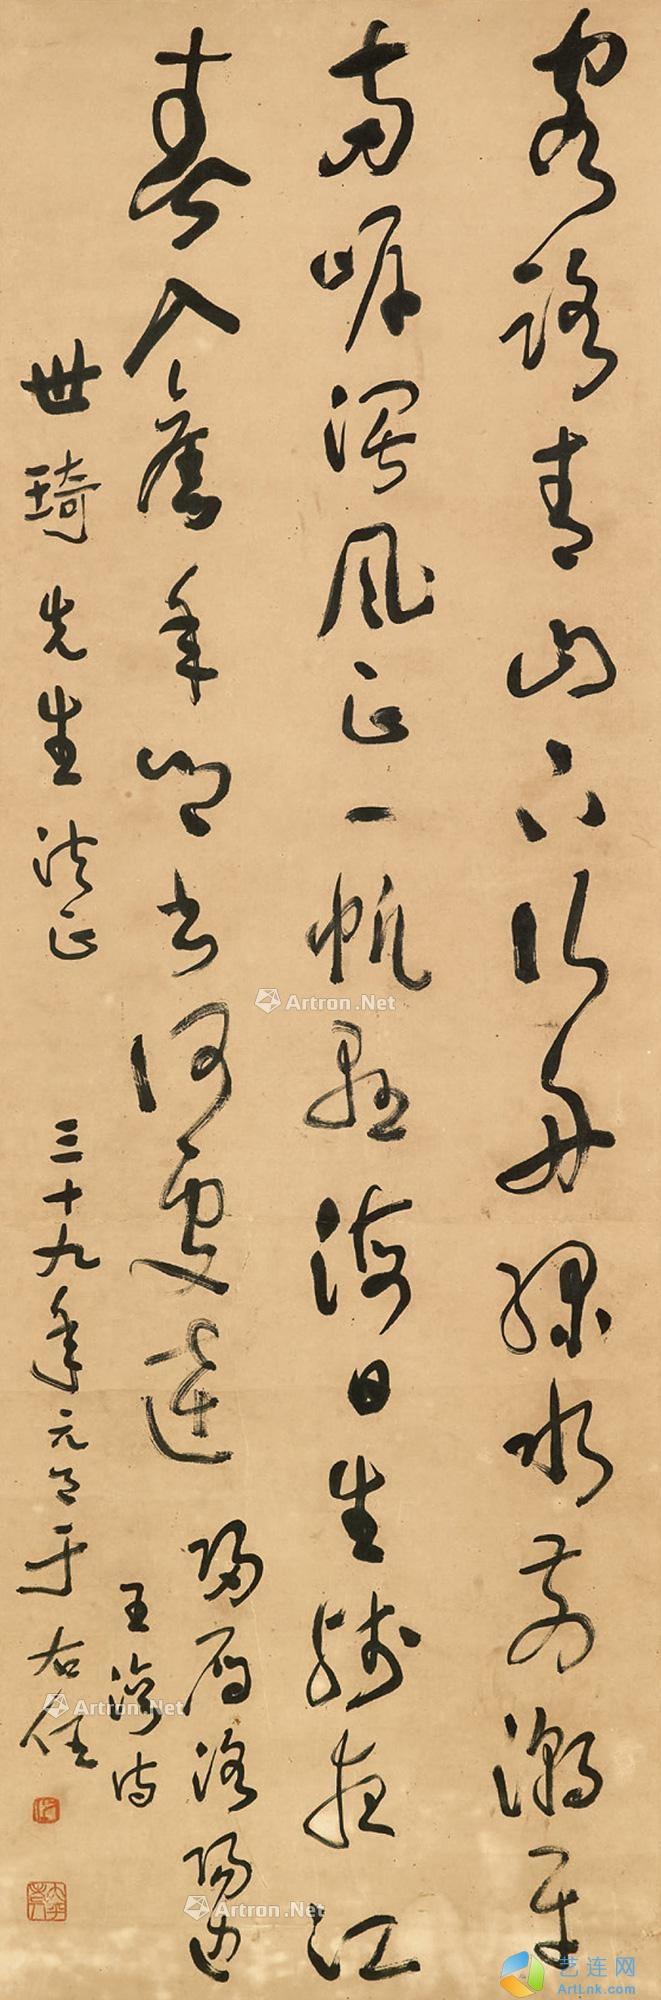 客路青山下行舟綠水前潮平
兩岸濶風正一帆懸海日生殘夜江
春入舊年鄉書何處達
歸雁洛陽邊
王灣詩
世琦先生法正
三十九年元旦于右任
Artron.Net
Artron.Net
Artron.Net
艺连网
ArtLnk.com